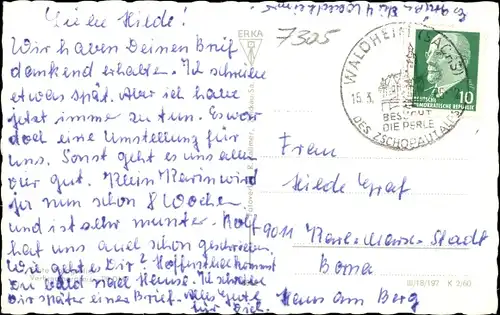 Liebe Hilde!
Wir haben Deinen Brief
dankend erhalten. Ich schreibe
etwas spät. Aber ich habe
jetzt immer zu tun. Es war
doch eine Umstellung für
uns. Sonst geht es uns allen
vier gut. Klein Marin wird
ja nun schon 8 Wochen
und ist sehr munter. Rolf
hat uns auch schon geschrieben.
Wie geht es Dir? Hoffentlich kommst
Du bald nach Hause. Ich schreibe
Dir später einen Brief. Alles Gute
für Dich.
ERKA
7305
WALDHEIM (SACHS)
15.3.
BESUCHT
DIE PERLE
DES ZSCHOPAUTALES
DEUTSCHE
DEMOKRATISCHE REPUBLIK
10
Frau
Hilde Graf
9011 Karl-Marx-Stadt
Borna
Haus am Berg
III/18/197 K 2/60